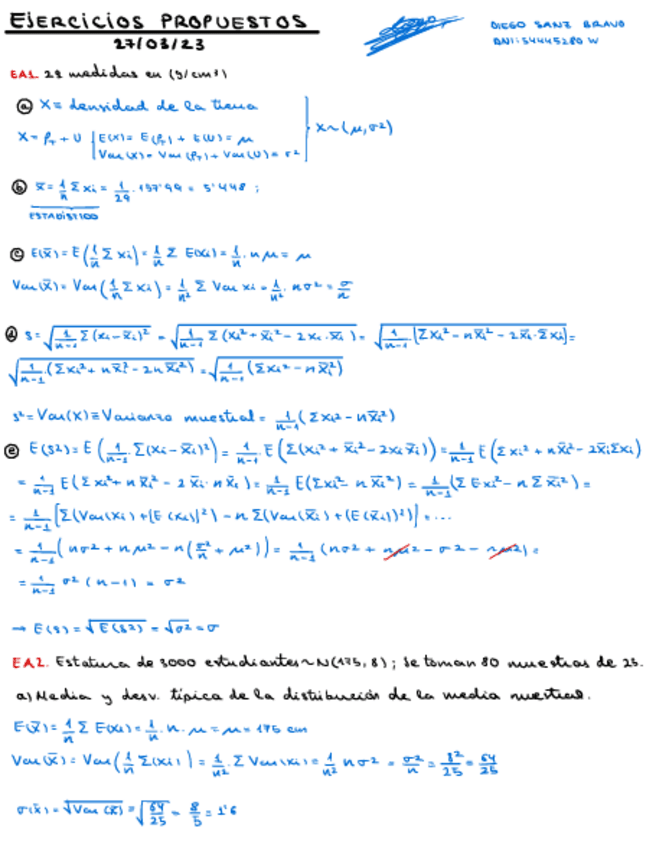 EJERCICIOS PROPUESTOS
27/03/23
DIEGO SANZ BRAVO
DNI: 54445280 W
EA1. 29 medidas en (g/cm³)
ⓐ X = densidad de la tierra
X = ρ_T + U | E(X) = E(ρ_T) + E(U) = μ
Var(X) = Var(ρ_T) + Var(U) = σ² } X ~ (μ, σ²)
ⓑ x̄ = 1/n Σxi = 1/29 · 157'99 = 5'448 ;
ESTADÍSTICO
ⓒ E(x̄) = E(1/n Σxi) = 1/n Σ E(xi) = 1/n · nμ = μ
Var(x̄) = Var(1/n Σxi) = 1/n² Σ Var xi = 1/n² · nσ² = σ/n
ⓓ S = √(1/(n-1) Σ(xi - x̄i)²) = √(1/(n-1) Σ(xi² + x̄i² - 2xi·x̄i)) = √(1/(n-1) [Σxi² - nx̄i² - 2x̄i·Σxi]) =
√(1/(n-1) · (Σxi² + nx̄i² - 2nx̄i²)) = √(1/(n-1) (Σxi² - nx̄i²))
S² = Var(X) ≡ Varianza muestral = 1/(n-1) (Σxi² - nx̄i²)
ⓔ E(S²) = E(1/(n-1) · Σ(xi - x̄i)²) = 1/(n-1) · E(Σ(xi² + x̄i² - 2xi x̄i)) = 1/(n-1) E(Σxi² + nx̄i² - 2x̄iΣxi)
= 1/(n-1) E(Σxi² + nx̄i² - 2x̄i·nx̄i) = 1/(n-1) E(Σxi² - nx̄i²) = 1/(n-1) (ΣExi² - nΣx̄i²) =
= 1/(n-1) [Σ(Var(xi) + (E(xi))²) - nΣ(Var(x̄i) + (E(x̄i))²)] = ...
= 1/(n-1) (nσ² + nμ² - n(σ²/n + μ²)) = 1/(n-1) (nσ² + nμ² - σ² - nμ²) =
= 1/(n-1) σ²(n-1) = σ²
→ E(S) = √E(S²) = √σ² = σ
EA2. Estatura de 3000 estudiantes ~ N(175, 8) ; se toman 80 muestras de 25.
a) Media y desv. típica de la distribución de la media muestral.
E(x̄) = 1/n Σ E(xi) = 1/n · n · μ = μ = 175 cm
Var(x̄) = Var(1/n Σ(xi)) = 1/n² · Σ Var(xi) = 1/n² nσ² = σ²/n = 8²/25 = 64/25
σ(x̄) = √Var(x̄) = √(64/25) = 8/5 = 1'6